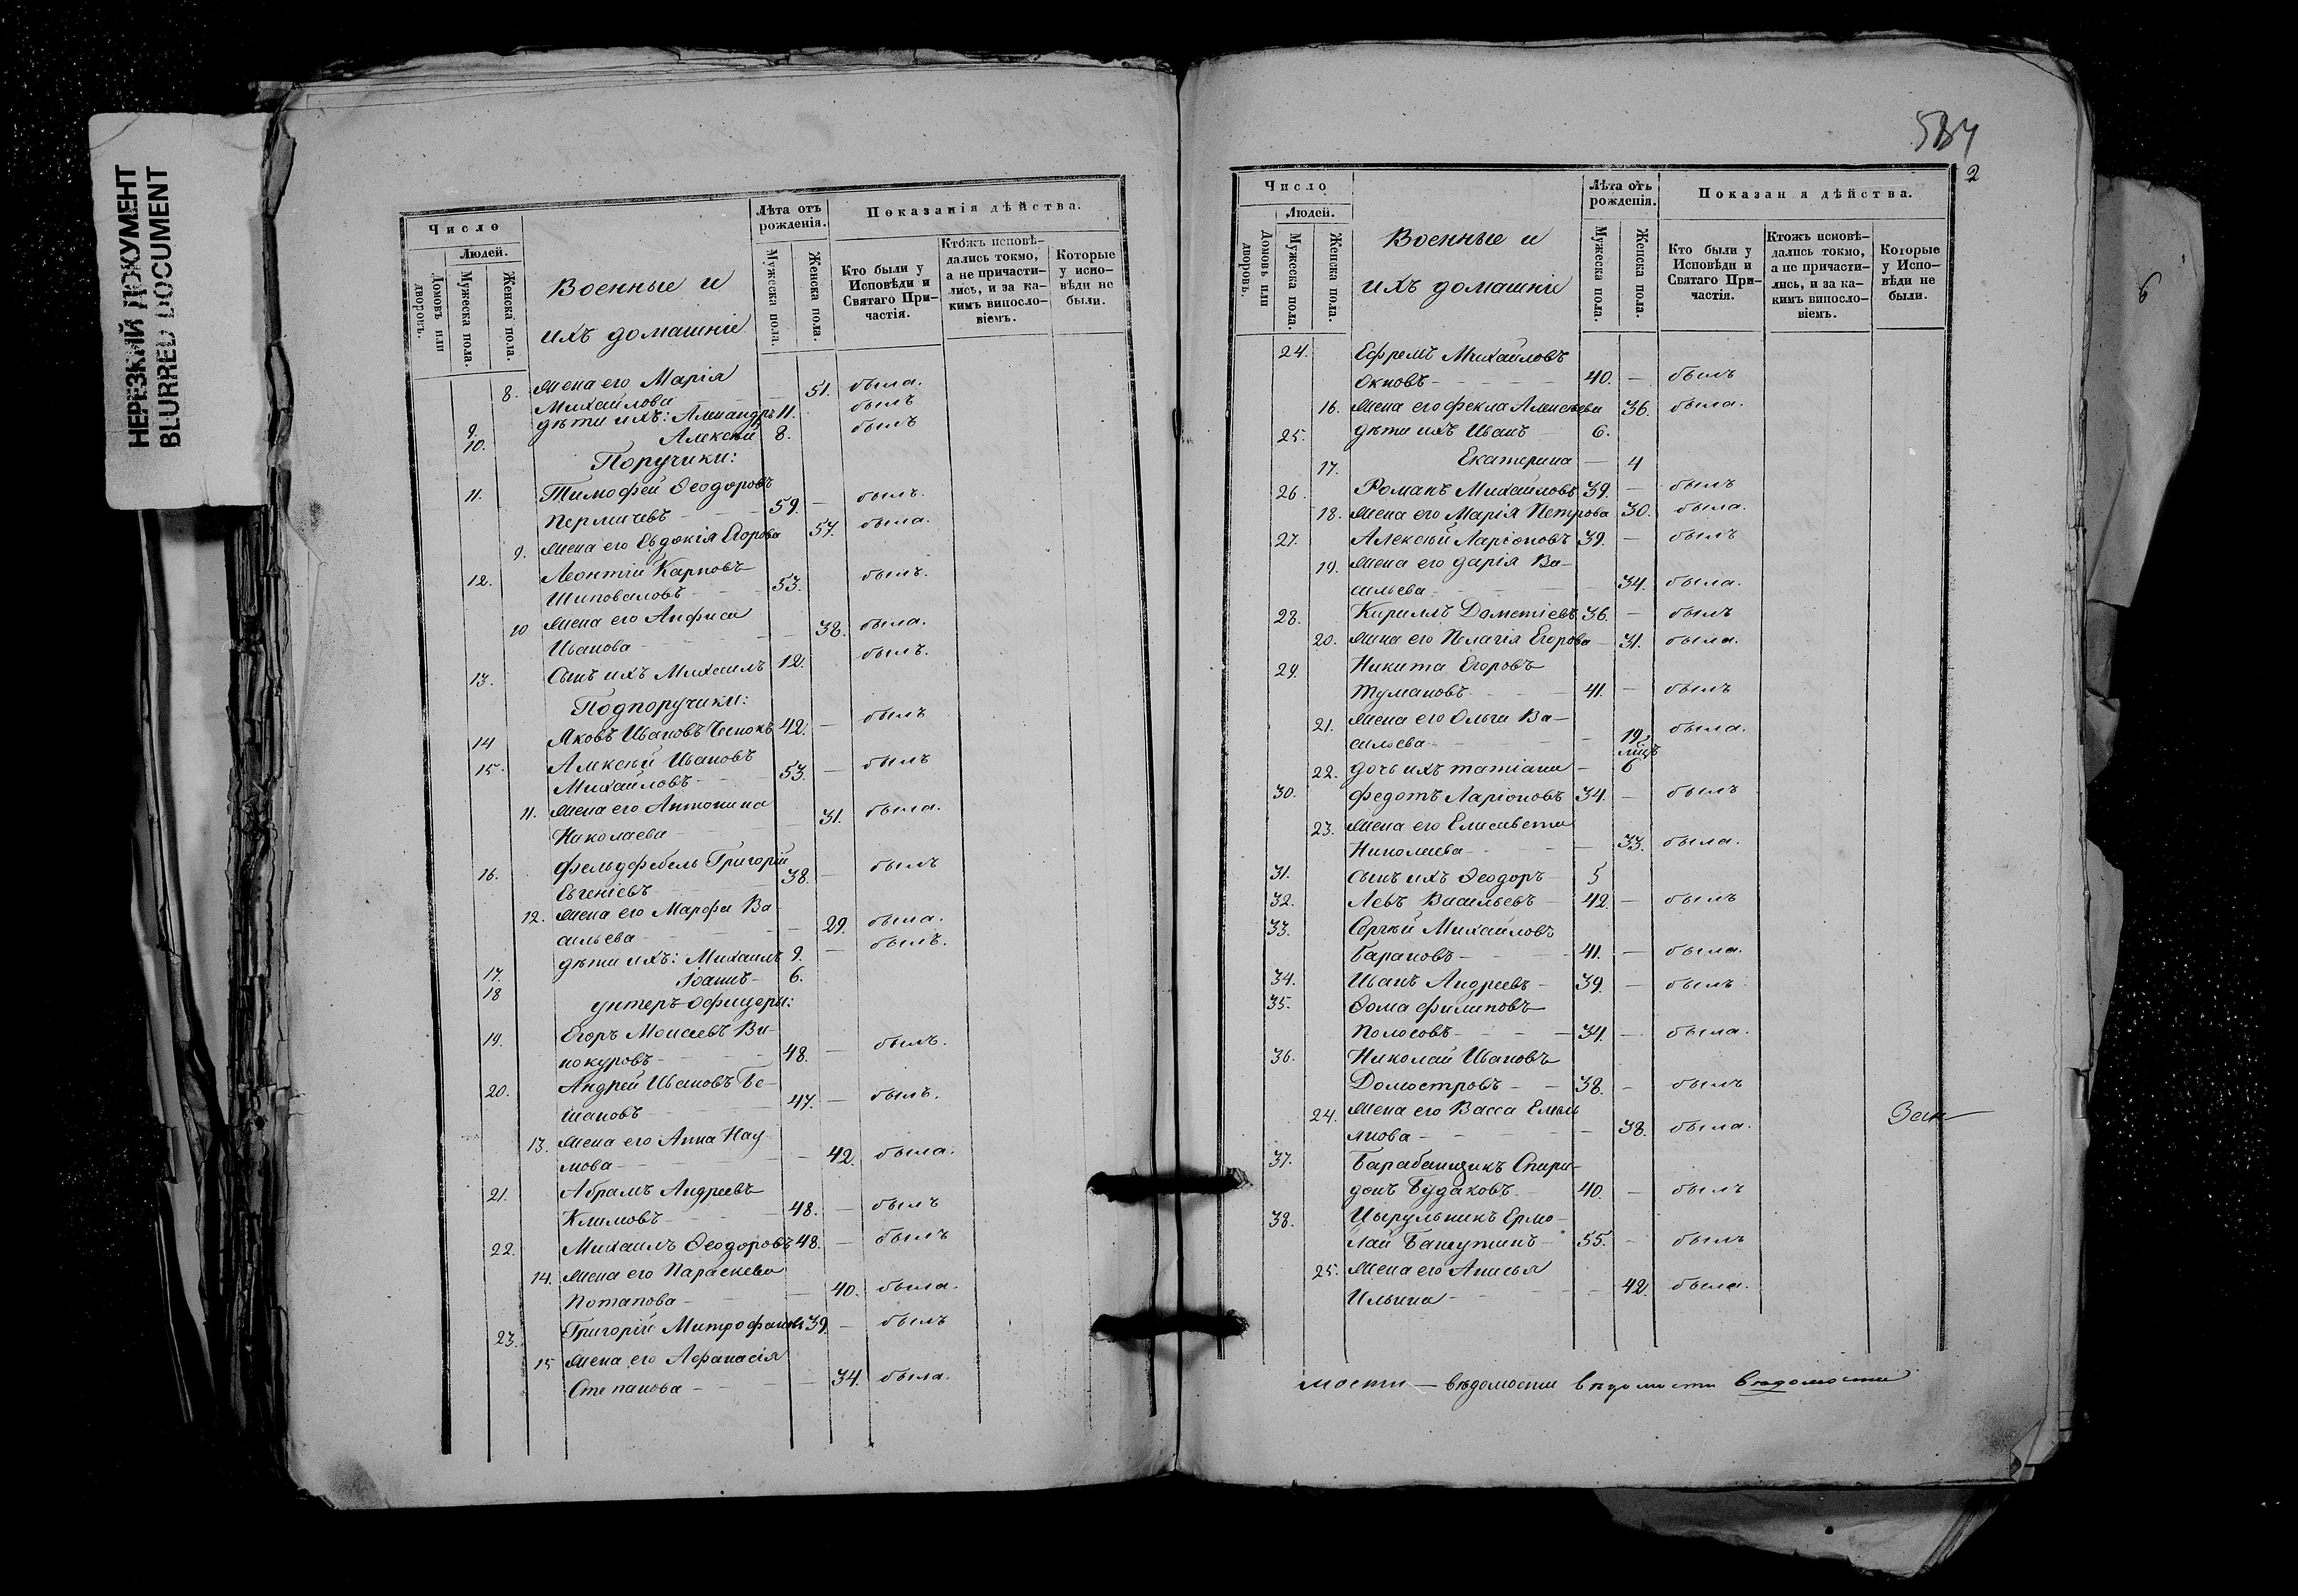 НЕРЕЗКИЙ ДОКУМЕНТ
BLURRED DOCUMENT
Число
Людей.
Домовъ или дворовъ.
Мужеска пола.
Женска пола.
Военные и
ихъ домашніе
Лѣта отъ рожденія.
Мужеска пола.
Женска пола.
Показанія дѣйства.
Кто были у Исповѣди и Святаго При-частія.
Ктожъ исповѣ-дались токмо, а не причасти-лись, и за ка-кимъ винносло-віемъ.
Которые у испо-вѣди не были.
8. Жена его Марія
Михайлова 51. была.
9. дѣти ихъ: Александръ 11. былъ
10. Алексѣй 8. былъ
Поручики:
11. Тимофей Ѳеодоровъ
Пермичевъ 59. былъ.
9. Жена его Евдокія Егорова 57. была.
12. Леонтій Карповъ
Шиповаловъ 53. былъ.
10 Жена его Анфиса
Иванова 38. была.
13. Сынъ ихъ Михаилъ 12. былъ.
Подпоручики:
14 Яковъ Ивановъ 42. былъ
15. Алексѣй Ивановъ
Михайловъ 53. былъ
11. Жена его Антонина
Николаева 31. была.
16. Фельдфебель Григорій
Евгеніевъ 38. былъ
12. Жена его Марфа Ва-
сильева 29. была.
17. дѣти ихъ: Михаилъ 9. былъ.
18 Іоаннъ 6.
унтеръ-офицеры:
19. Егоръ Моисеевъ Ви-
нокуровъ 48. былъ.
20. Андрей Ивановъ Бе-
шановъ 47. былъ.
13. Жена его Анна Нау-
мова 42. была.
21. Абрамъ Андреевъ
Климовъ 48. былъ
22. Михаилъ Ѳеодоровъ 48. былъ
14. Жена его Параскева
Потапова 40. была.
23. Григорій Митрофановъ 39. былъ
15 Жена его Афанасія
Степанова 34. была.
2
Число
Людей.
Домовъ или дворовъ.
Мужеска пола.
Женска пола.
Военные и
ихъ домашніе
Лѣта отъ рожденія.
Мужеска пола.
Женска пола.
Показан я дѣйства.
Кто были у Исповѣди и Святаго При-частія.
Ктожъ исповѣ-дались токмо, а не причасти-лись, и за ка-кимъ винносло-віемъ.
Которые у Испо-вѣди не были.
24. Ефремъ Михайловъ
Окновъ 40. былъ
16. Жена его Фекла Алексѣева 36. была.
25. дѣти ихъ Иванъ 6.
17. Екатерина 4
26. Романъ Михайловъ 39. былъ
18. Жена его Марія Петрова 30. была.
27. Алексѣй Ларіоновъ 39. былъ
19. Жена его Дарія Ва-
сильева 34. была.
28. Кириллъ Дометіевъ 36. былъ
20. Жена его Пелагія Егорова 31. была.
29. Никита Егоровъ
Тумановъ 41. былъ
21. Жена его Ольга Ва-
сильева 19. была.
22. дочь ихъ Татіана 6
30. Федотъ Ларіоновъ 34. былъ
23. Жена его Елисавета
Николаева 33. была.
31. сынъ ихъ Ѳеодоръ 5
32. Левъ Васильевъ 42. былъ
33. Сергѣй Михайловъ
Барановъ 41. была.
34. Иванъ Андреевъ 39. былъ
35. Ѳома Филиповъ
Полосовъ 34. была.
36. Николай Ивановъ
Домостровъ 38. былъ
24. Жена его Васса Емель
янова 38. была.
37. Барабанщикъ Спири-
донъ Будаковъ 40. былъ
38. Цырульникъ Ермо-
лай Башутинъ 55. былъ
25. Жена его Анисья
Ильина 42. была.
мости — вѣдомости вѣдомости вѣдомости
6